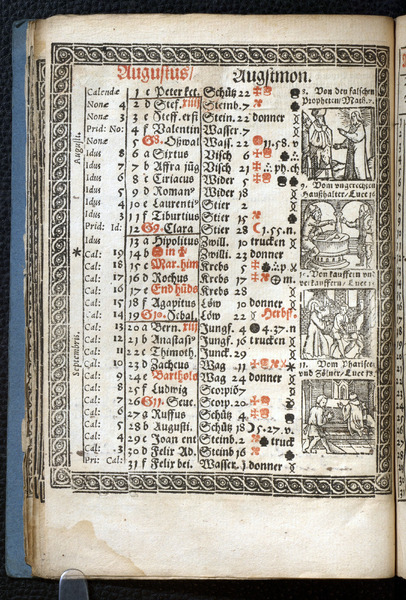 Augustus/ Augstmon.
Calendæ 1 c Peter ket. Schütz 22
Nonæ 4 2 d Stef. xiiij Steinb. 7
Nonæ 3 3 e Steff. erfi Stein. 22 donner
Prid: No: 4 f Valentin Wasser. 7
Nonæ 5 G8. Oßwal Wass. 22 11.58. v
Idus 8 6 a Sixtus Visch 6
Idus 7 7 b Affra jüg Visch 21
Idus 6 8 c Ciriacus Wider 5
Idus 5 9 d Roman⁹ Wider 18
Idus 4 10 e Laurenti⁹ Stier 2
Idus 3 11 f Tiburtius Stier 15
Prid: Id: 12 G9. Clara Stier 28 1.55. n.
Idus 13 a Hipolitus Zwill. 10 trucken
Cal: 19 14 b Zwilli. 23 donner
Cal: 18 15 c Mar. him Krebs 5
Cal: 17 16 d Rochus Krebs 17 m.
Cal: 16 17 e End hüds Krebs 28
Cal: 15 18 f Agapitus Löw 10 donner
Cal: 14 19 G10. Sebal. Löw 22 Herbst.
Cal: 13 20 a Bern. xiij Jungf. 4 4.37. n
Cal: 12 21 b Anastasi⁹ Jungf. 16 trucken
Cal: 11 22 c Thimoth. Junck. 29
Cal: 10 23 d Zacheus Wag 11
Cal: 9 24 e Bartholo Wag 24 donner
Cal: 8 25 f Ludwig Scorpio 7
Cal: 7 26 G11. Seue. Scorp. 20
Cal: 6 27 a Ruffus Schütz 4
Cal: 5 28 b Augusti. Schütz 18 5.27. v.
Cal: 4 29 c Joan ent Steinb. 2 truck
Cal: 3 30 d Felix Ad Steinb 16
Pri: Cal: 31 e Felix bei. Wasser. 1 donner
Augusti.
Septembris.
8. Von den falschen
Propheten/ Math. 7.
9. Vom vngerechten
Haußhalter/ Luce 16
10. Von kauffern vnd
verkauffern/ Luce
11. Vom Phariseer
vnd Zölner/ Luce 18.